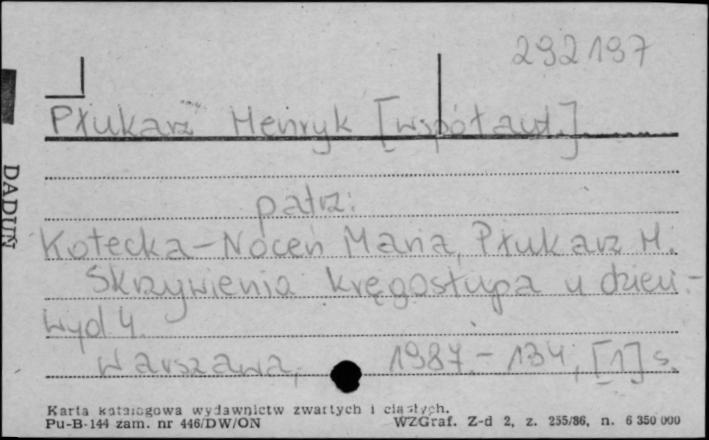 292197
Płukarz Henryk [współaut.]
DADUŃ
patrz:
Kotecka-Noceń Maria, Płukarz H.
Skrzywienia kręgosłupa u dzieci.-
Wyd 4.
Warszawa, 1987.- 134, [1] s.
Karta katalogowa wydawnictw zwartych i ciągłych.
Pu-B-144 zam. nr 446/DW/ON WZGraf. Z-d 2, z. 255/86, n. 6 350 000